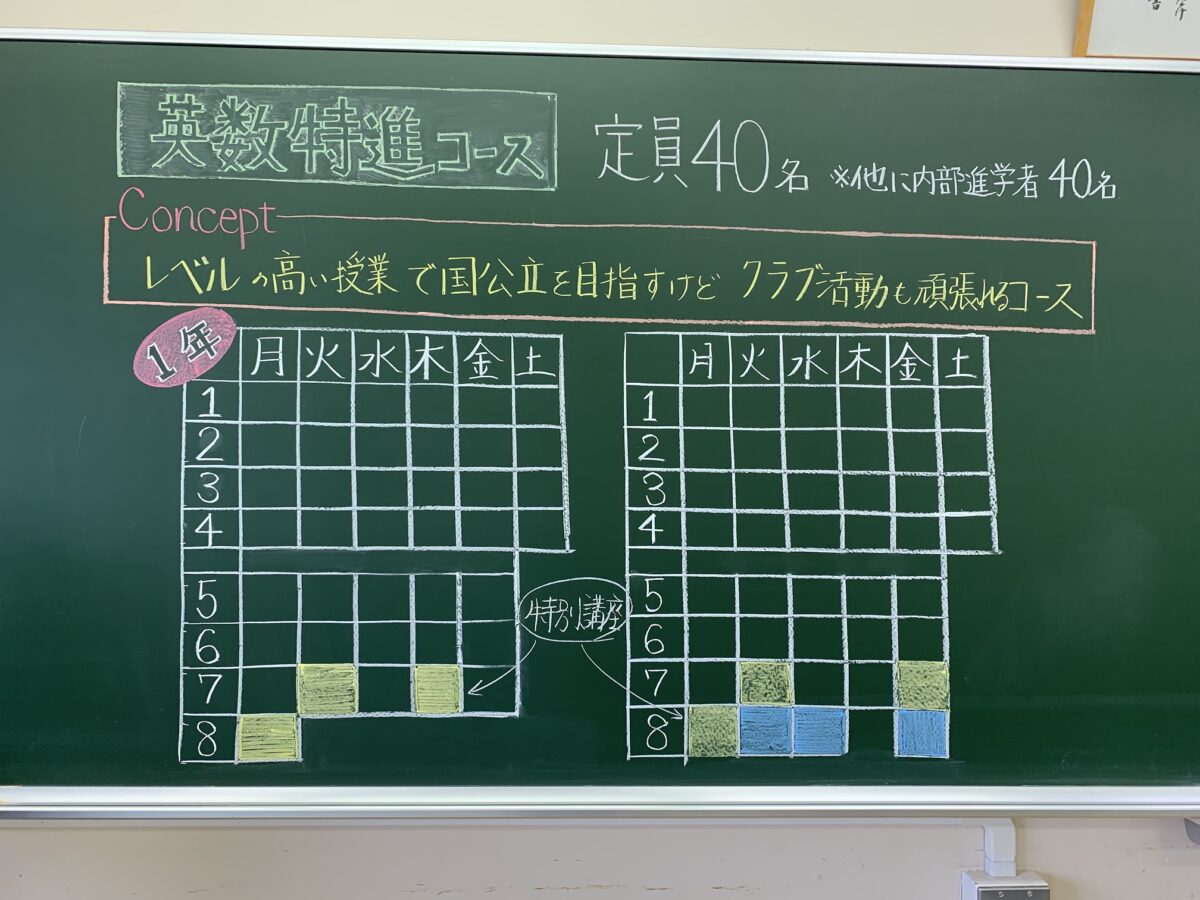 英数特進コース 定員40名 ※他に内部進学者40名
Concept
レベルの高い授業で国公立を目指すけど クラブ活動も頑張れるコース
1年
月 火 水 木 金 土
1
2
3
4
5
6
7
8
特別講座
月 火 水 木 金 土
1
2
3
4
5
6
7
8